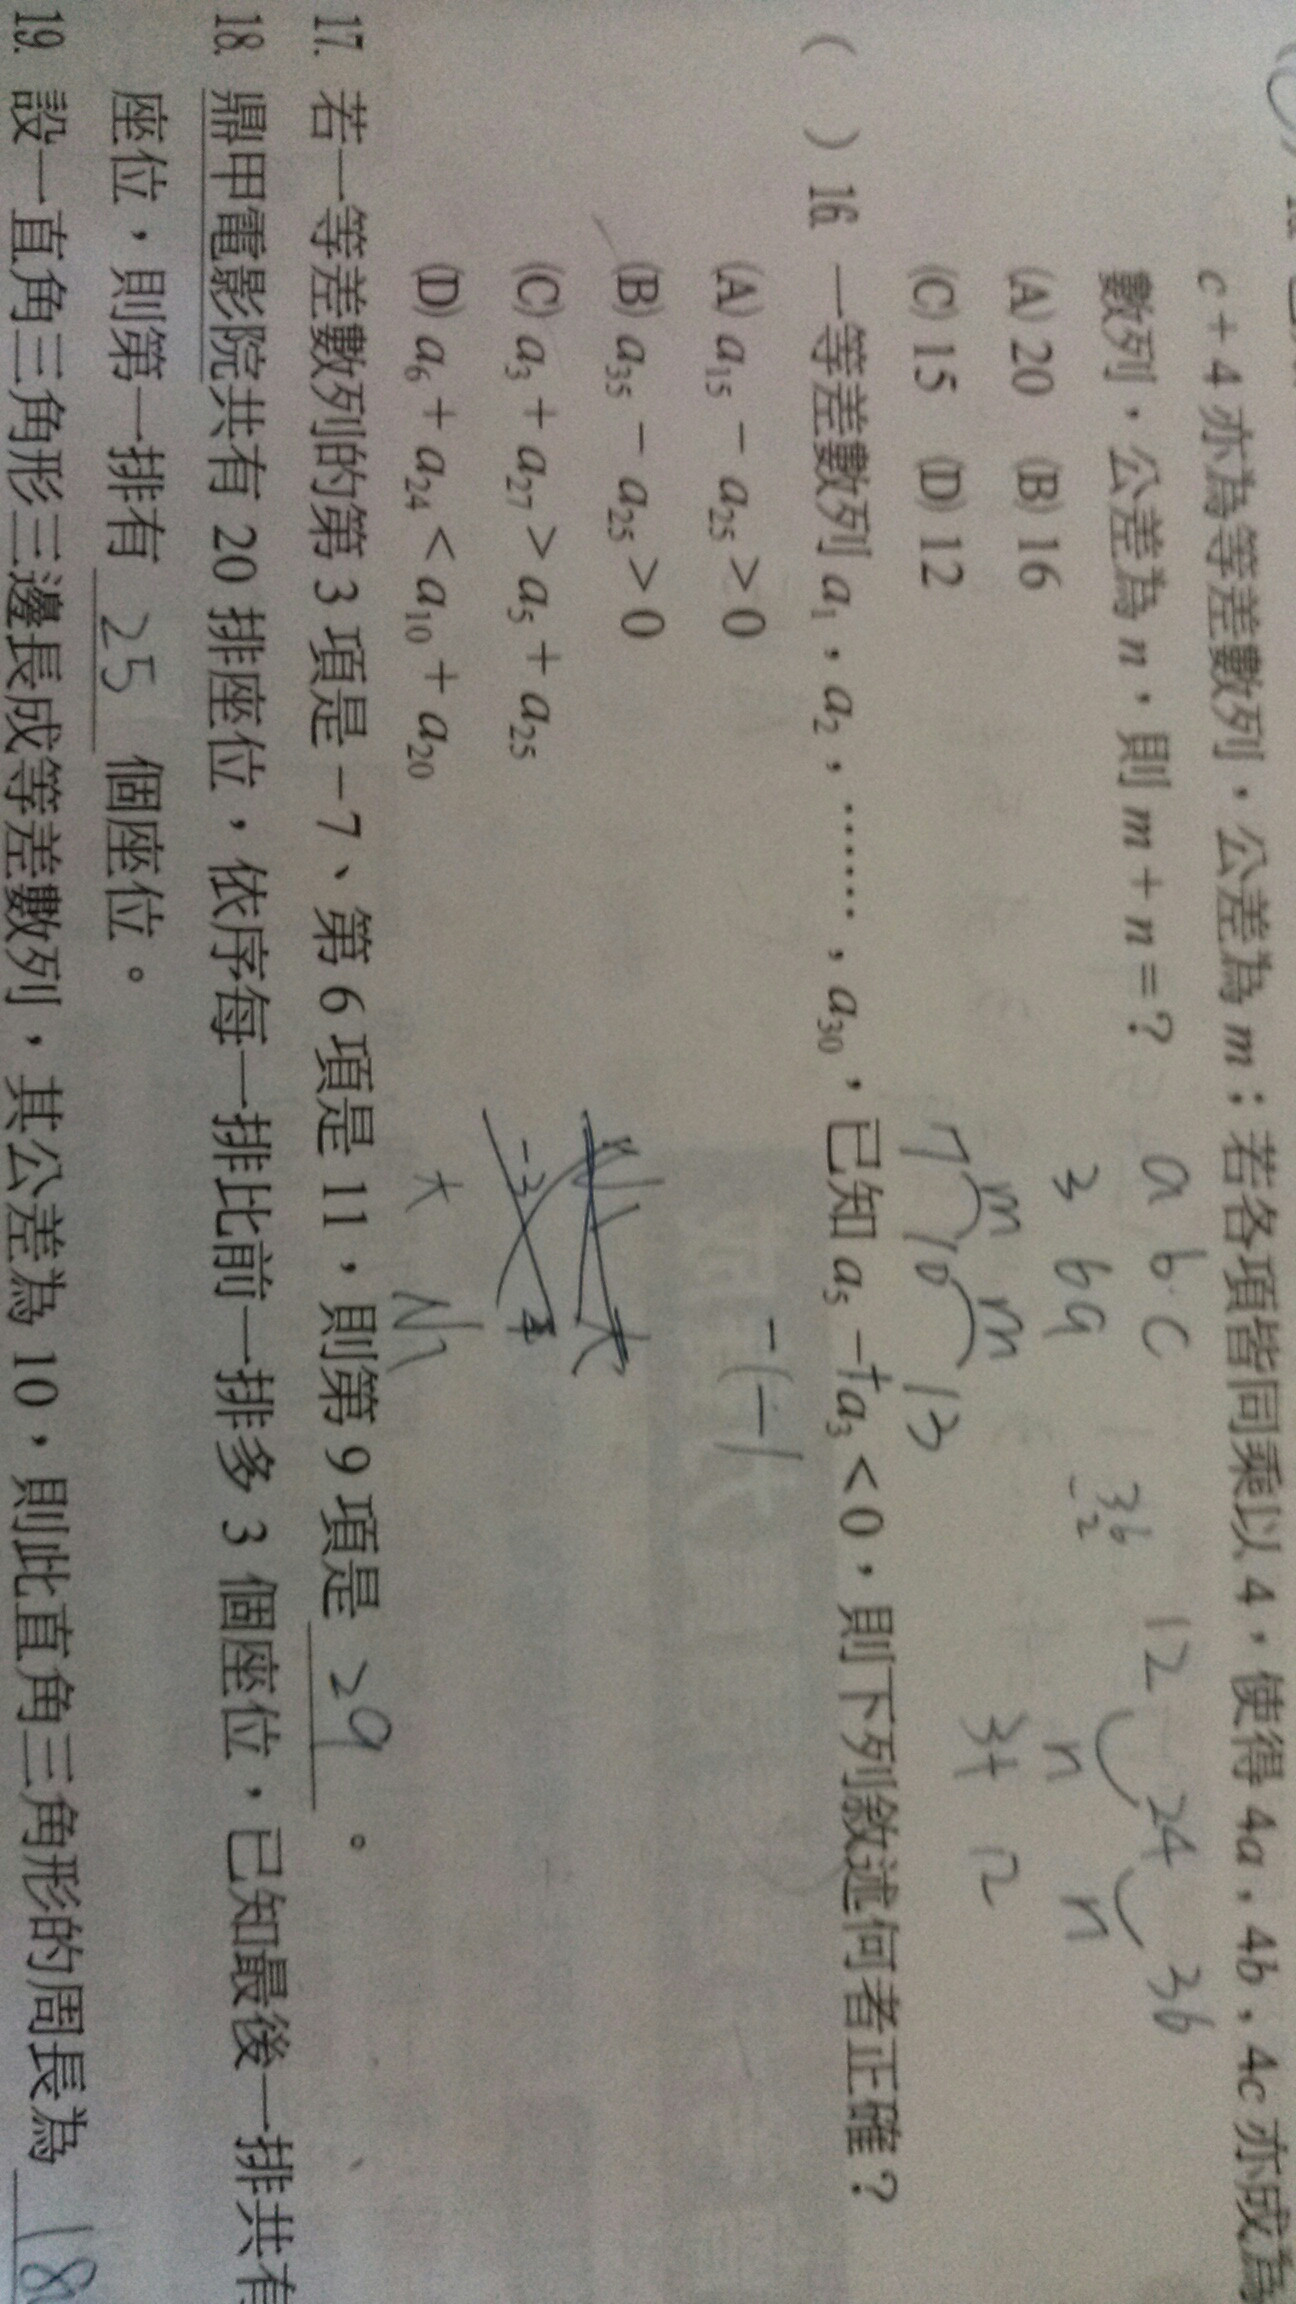 c + 4 亦為等差數列，公差為 m；若各項皆同乘以 4，使得 4a，4b，4c 亦成為
數列，公差為 n，則 m + n = ?
a b c
3 6 9
12 24 36
n n
(A) 20 (B) 16
(C) 15 (D) 12
m m
7 10 13
3 + 12
( ) 16. 一等差數列 a₁，a₂，……，a₃₀，已知 a₅ − a₃ < 0，則下列敘述何者正確？
(A) a₁₅ − a₂₅ > 0
(B) a₃₅ − a₂₅ > 0
(C) a₃ + a₂₇ > a₅ + a₂₅
(D) a₆ + a₂₄ < a₁₀ + a₂₀
17. 若一等差數列的第 3 項是 −7、第 6 項是 11，則第 9 項是 29 。
18. 鼎甲電影院共有 20 排座位，依序每一排比前一排多 3 個座位，已知最後一排共有
座位，則第一排有 25 個座位。
19. 設一直角三角形三邊長成等差數列，其公差為 10，則此直角三角形的周長為 18